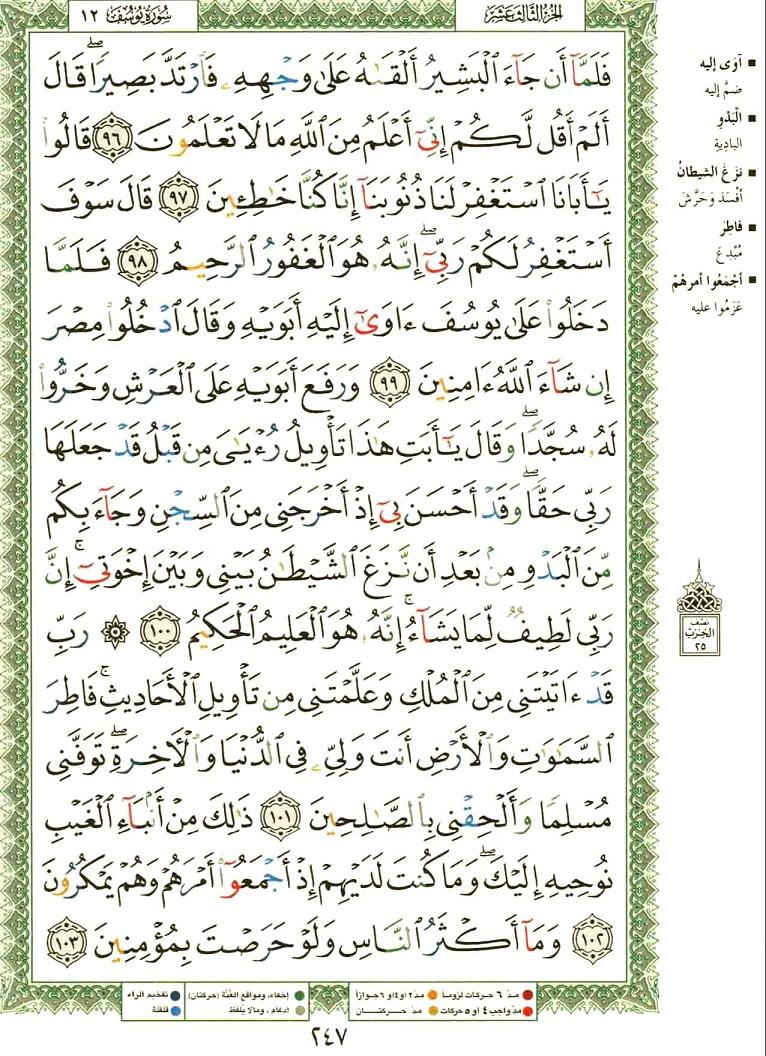 الجزء الثالث عشر
سورة يوسف ١٢
فَلَمَّآ أَن جَآءَ ٱلْبَشِيرُ أَلْقَىٰهُ عَلَىٰ وَجْهِهِۦ فَٱرْتَدَّ بَصِيرًا ۖ قَالَ
أَلَمْ أَقُل لَّكُمْ إِنِّىٓ أَعْلَمُ مِنَ ٱللَّهِ مَا لَا تَعْلَمُونَ ٩٦ قَالُوا۟
يَـٰٓأَبَانَا ٱسْتَغْفِرْ لَنَا ذُنُوبَنَآ إِنَّا كُنَّا خَـٰطِـِٔينَ ٩٧ قَالَ سَوْفَ
أَسْتَغْفِرُ لَكُمْ رَبِّىٓ ۖ إِنَّهُۥ هُوَ ٱلْغَفُورُ ٱلرَّحِيمُ ٩٨ فَلَمَّا
دَخَلُوا۟ عَلَىٰ يُوسُفَ ءَاوَىٰٓ إِلَيْهِ أَبَوَيْهِ وَقَالَ ٱدْخُلُوا۟ مِصْرَ
إِن شَآءَ ٱللَّهُ ءَامِنِينَ ٩٩ وَرَفَعَ أَبَوَيْهِ عَلَى ٱلْعَرْشِ وَخَرُّوا۟
لَهُۥ سُجَّدًا ۖ وَقَالَ يَـٰٓأَبَتِ هَـٰذَا تَأْوِيلُ رُءْيَـٰىَ مِن قَبْلُ قَدْ جَعَلَهَا
رَبِّى حَقًّا ۖ وَقَدْ أَحْسَنَ بِىٓ إِذْ أَخْرَجَنِى مِنَ ٱلسِّجْنِ وَجَآءَ بِكُم
مِّنَ ٱلْبَدْوِ مِنۢ بَعْدِ أَن نَّزَغَ ٱلشَّيْطَـٰنُ بَيْنِى وَبَيْنَ إِخْوَتِىٓ ۚ إِنَّ
رَبِّى لَطِيفٌ لِّمَا يَشَآءُ ۚ إِنَّهُۥ هُوَ ٱلْعَلِيمُ ٱلْحَكِيمُ ١٠٠ ۞ رَبِّ
قَدْ ءَاتَيْتَنِى مِنَ ٱلْمُلْكِ وَعَلَّمْتَنِى مِن تَأْوِيلِ ٱلْأَحَادِيثِ ۚ فَاطِرَ
ٱلسَّمَـٰوَٰتِ وَٱلْأَرْضِ أَنتَ وَلِىِّۦ فِى ٱلدُّنْيَا وَٱلْـَٔاخِرَةِ ۖ تَوَفَّنِى
مُسْلِمًا وَأَلْحِقْنِى بِٱلصَّـٰلِحِينَ ١٠١ ذَٰلِكَ مِنْ أَنۢبَآءِ ٱلْغَيْبِ
نُوحِيهِ إِلَيْكَ ۖ وَمَا كُنتَ لَدَيْهِمْ إِذْ أَجْمَعُوٓا۟ أَمْرَهُمْ وَهُمْ يَمْكُرُونَ
١٠٢ وَمَآ أَكْثَرُ ٱلنَّاسِ وَلَوْ حَرَصْتَ بِمُؤْمِنِينَ ١٠٣
■ آوى إليه
ضمَّ إليه
■ الْبَدْوِ
البادية
■ نزغَ الشيطانُ
أفْسَدَ وَحَرَّشَ
■ فاطِرَ
مُبْدِعَ
■ أجْمَعُوا أمرهُمْ
عَزَمُوا عليه
نصف
الحزب
٢٥
مدّ ٦ حركات لزوماً ● مدّ ٢ أو ٤ أو ٦ جوازاً
مدّ واجب ٤ أو ٥ حركات ● مدّ حركتان
إخفاء، ومواقع الغُنَّة (حركتان) ● تفخيم الراء
إدغام، وما لا يُلفظ ● قلقلة
٢٤٧